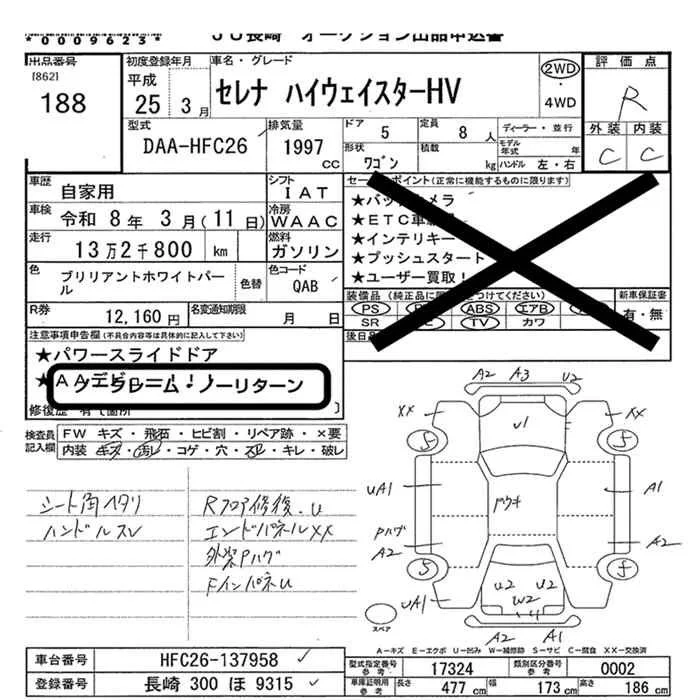 *0009623*
JU長崎 オークション出品申込書
出品番号
[862]
188
初度登録年月
平成
25年 3月
車名・グレード
セレナ ハイウェイスターHV
2WD
・
4WD
評価点
R
外装 内装
C C
型式
DAA-HFC26
排気量
1997
CC
ドア
5
定員
8人
形状
ワゴン
積載
kg
ディーラー・並行
モデル年式 年
ハンドル 左・右
車歴
自家用
シフト
IAT
車検
令和 8年 3月(11日)
冷房
WAAC
走行
13万2千800 km
燃料
ガソリン
色
ブリリアントホワイトパール
色替
色コード
QAB
R券
12,160円
名変通知期限
月 日
セールスポイント(正常に機能するものに限ります)
★バックカメラ
★ETC車
★インテリキー
★プッシュスタート
★ユーザー買取!
装備品(純正品に つけてください)
PS
ABS
エアB
SR
TV
カワ
新車保証書
有・無
後日
注意事項申告欄(不具合内容等は具体的に記入して下さい)
★パワースライドドア
ノークレーム・ノーリターン
修復歴 有(箇所
検査員
記入欄
FW キズ・飛石・ヒビ割・リペア跡・×要
内装 キズ・汚レ・コゲ・穴・スレ・キレ・破レ
シート角ヘタリ
ハンドルスレ
Rフロア修復.U
エンドパネルXX
外装Pハゲ
FインパネU
A2 A3 U2
XX XX
U1
5 5
UA1 A1
Pハゲ
A2 A2
5 5
U2 U2
W2
UA1
A2 A1
スペア
A－キズ E－エクボ U－凹み W－補修跡 S－サビ C－腐食 XX－交換済
車台番号
HFC26-137958
登録番号
長崎 300 ほ 9315
型式指定番号
参考
17324
類別区分番号
参考
0002
車庫証明用
参考
長さ 477 cm
幅 173 cm
高さ 186 cm